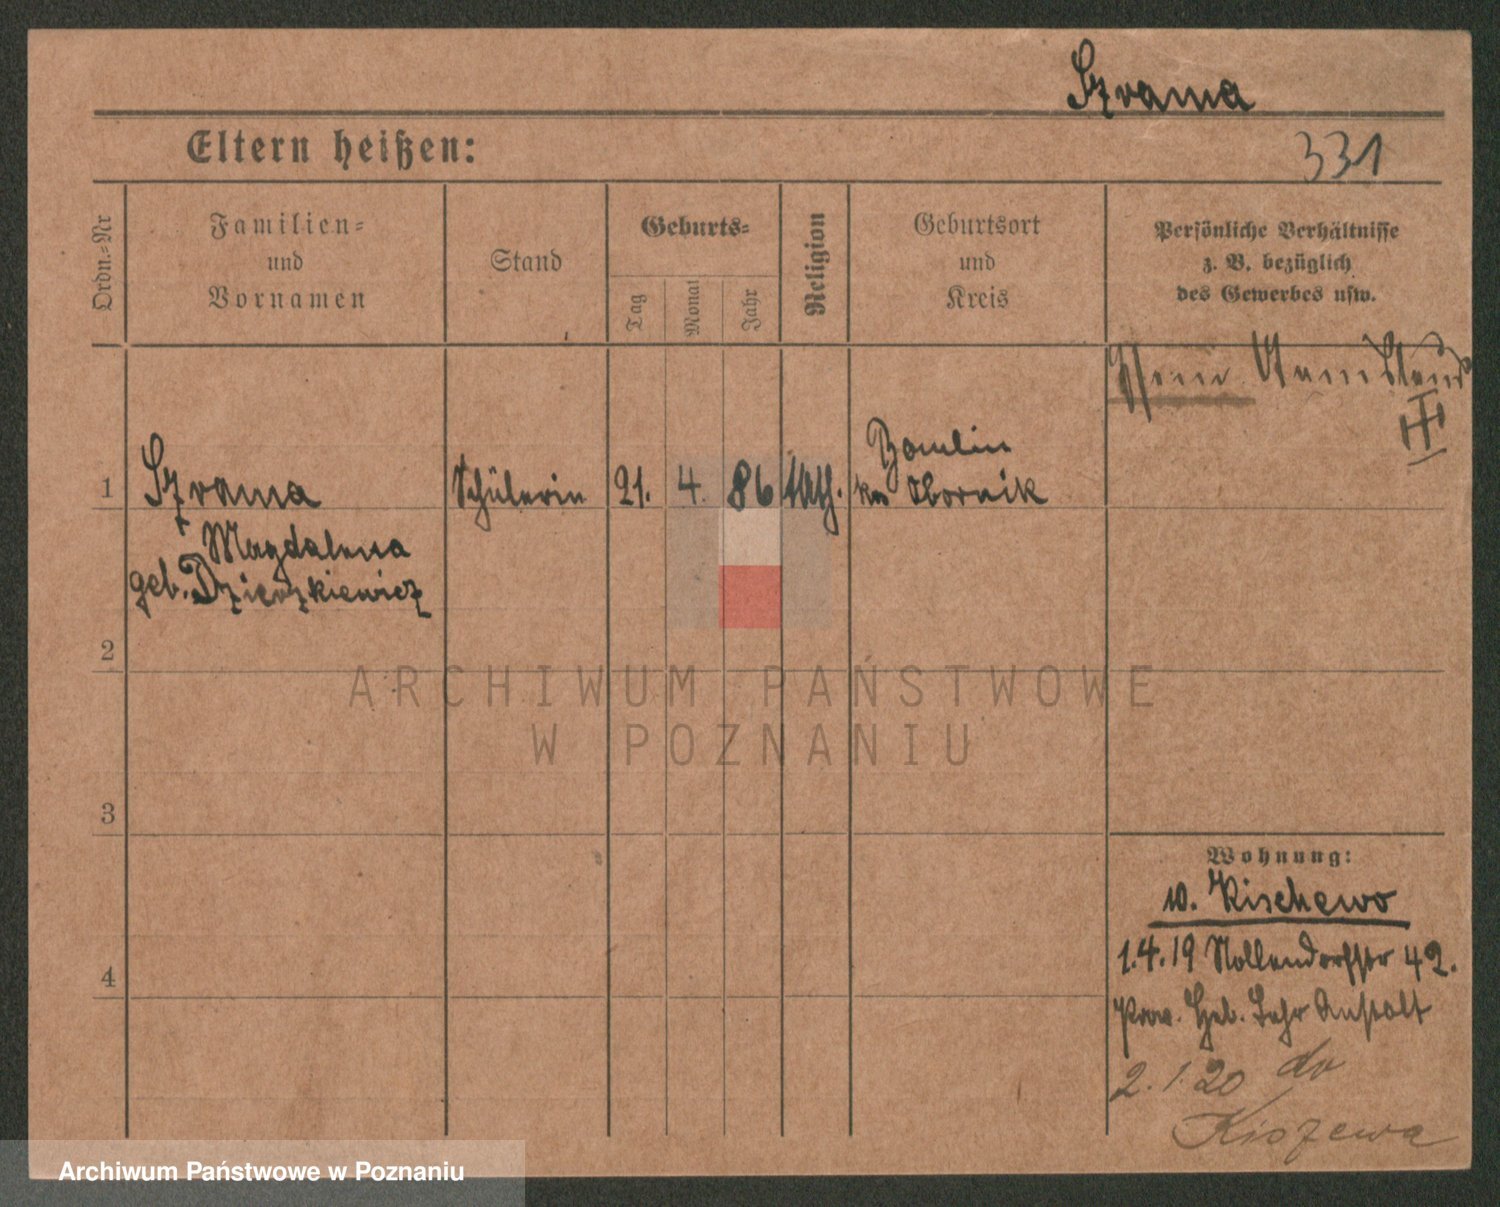 Szrama
Eltern heißen:
331
Ordn.-Nr
Familien-
und
Vornamen
Stand
Geburts-
Tag
Monat
Jahr
Religion
Geburtsort
und
Kreis
Persönliche Verhältnisse
z. B. bezüglich
des Gewerbes usw.
1
Szrama
Magdalena
geb.
Schülerin
21.
4.
86
kath.
Bomblin
Kr. Obornik
2
3
4
Wohnung:
w. Kischewo
1.4.19 Nollendorfstr 42.
Prov. Heb. Lehr Anstalt
2.1.20 do
Kiszewa
ARCHIWUM PAŃSTWOWE
W POZNANIU
Archiwum Państwowe w Poznaniu